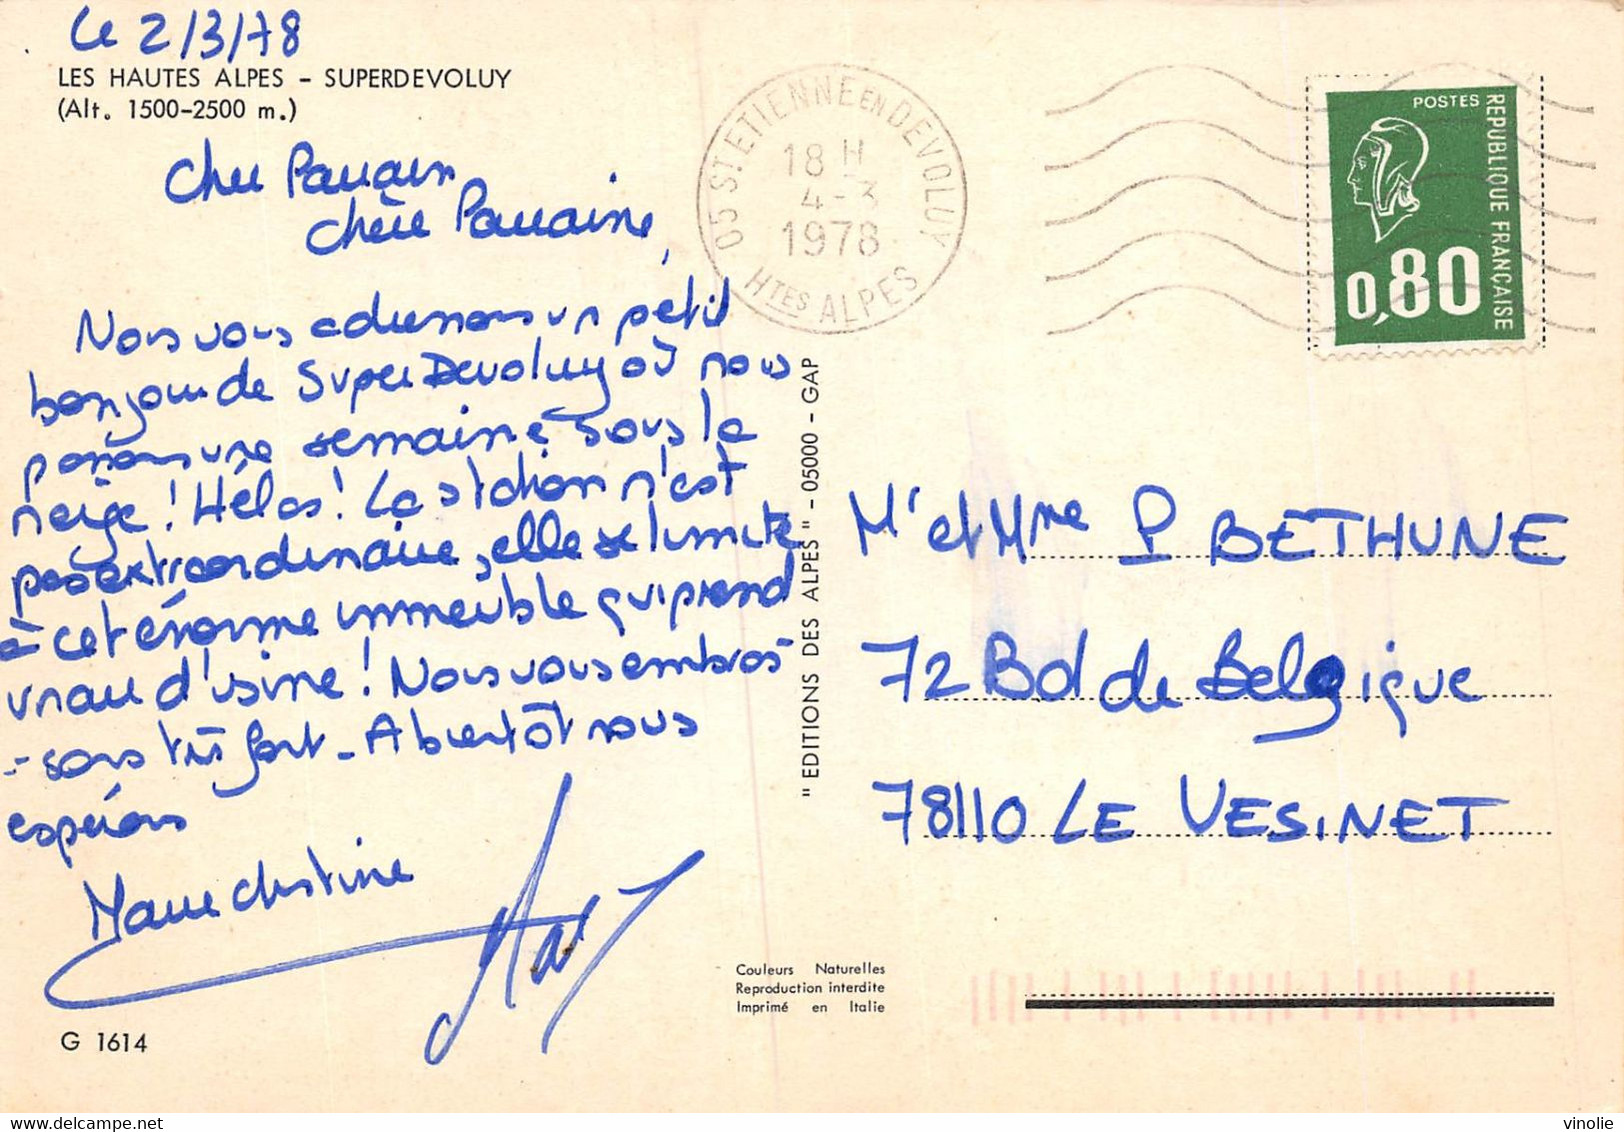 Le 2/3/78
LES HAUTES ALPES - SUPERDEVOLUY
(Alt. 1500-2500 m.)
Cher Parrain
chère Marraine,
Nous vous adressons un petit
bonjour de SuperDevoluy où nous
passons une semaine sous la
neige ! Hélas ! La station n'est
pas extraordinaire, elle se limite
à cet énorme immeuble qui prend
vraie d'usine ! Nous vous embras-
-sons très fort - A bientôt nous
espérons
Marie christine
G 1614
05 ST ETIENNE EN DEVOLUY
18 H
4-3
1978
HTES ALPES
POSTES
REPUBLIQUE FRANÇAISE
0,80
" EDITIONS DES ALPES " - 05000 - GAP
Mr et Mme P BETHUNE
72 Bd de Belgique
78110 LE VESINET
Couleurs Naturelles
Reproduction interdite
Imprimé en Italie
delcampe.net
vinolie